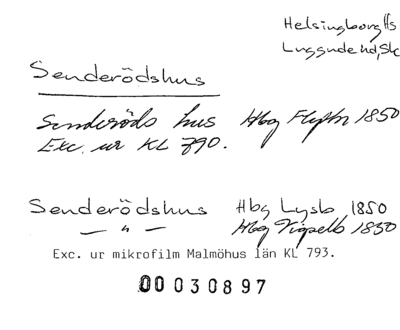 Helsingborg Hs
Luggude hd, Sk
Senderödshus
Senderöds hus Hbg Flyttn 1850
Exc. ur KL 790.
Senderödshus Hbg Lysb 1850
— " — Hbg Vigselb 1850
Exc. ur mikrofilm Malmöhus län KL 793.
00 030897